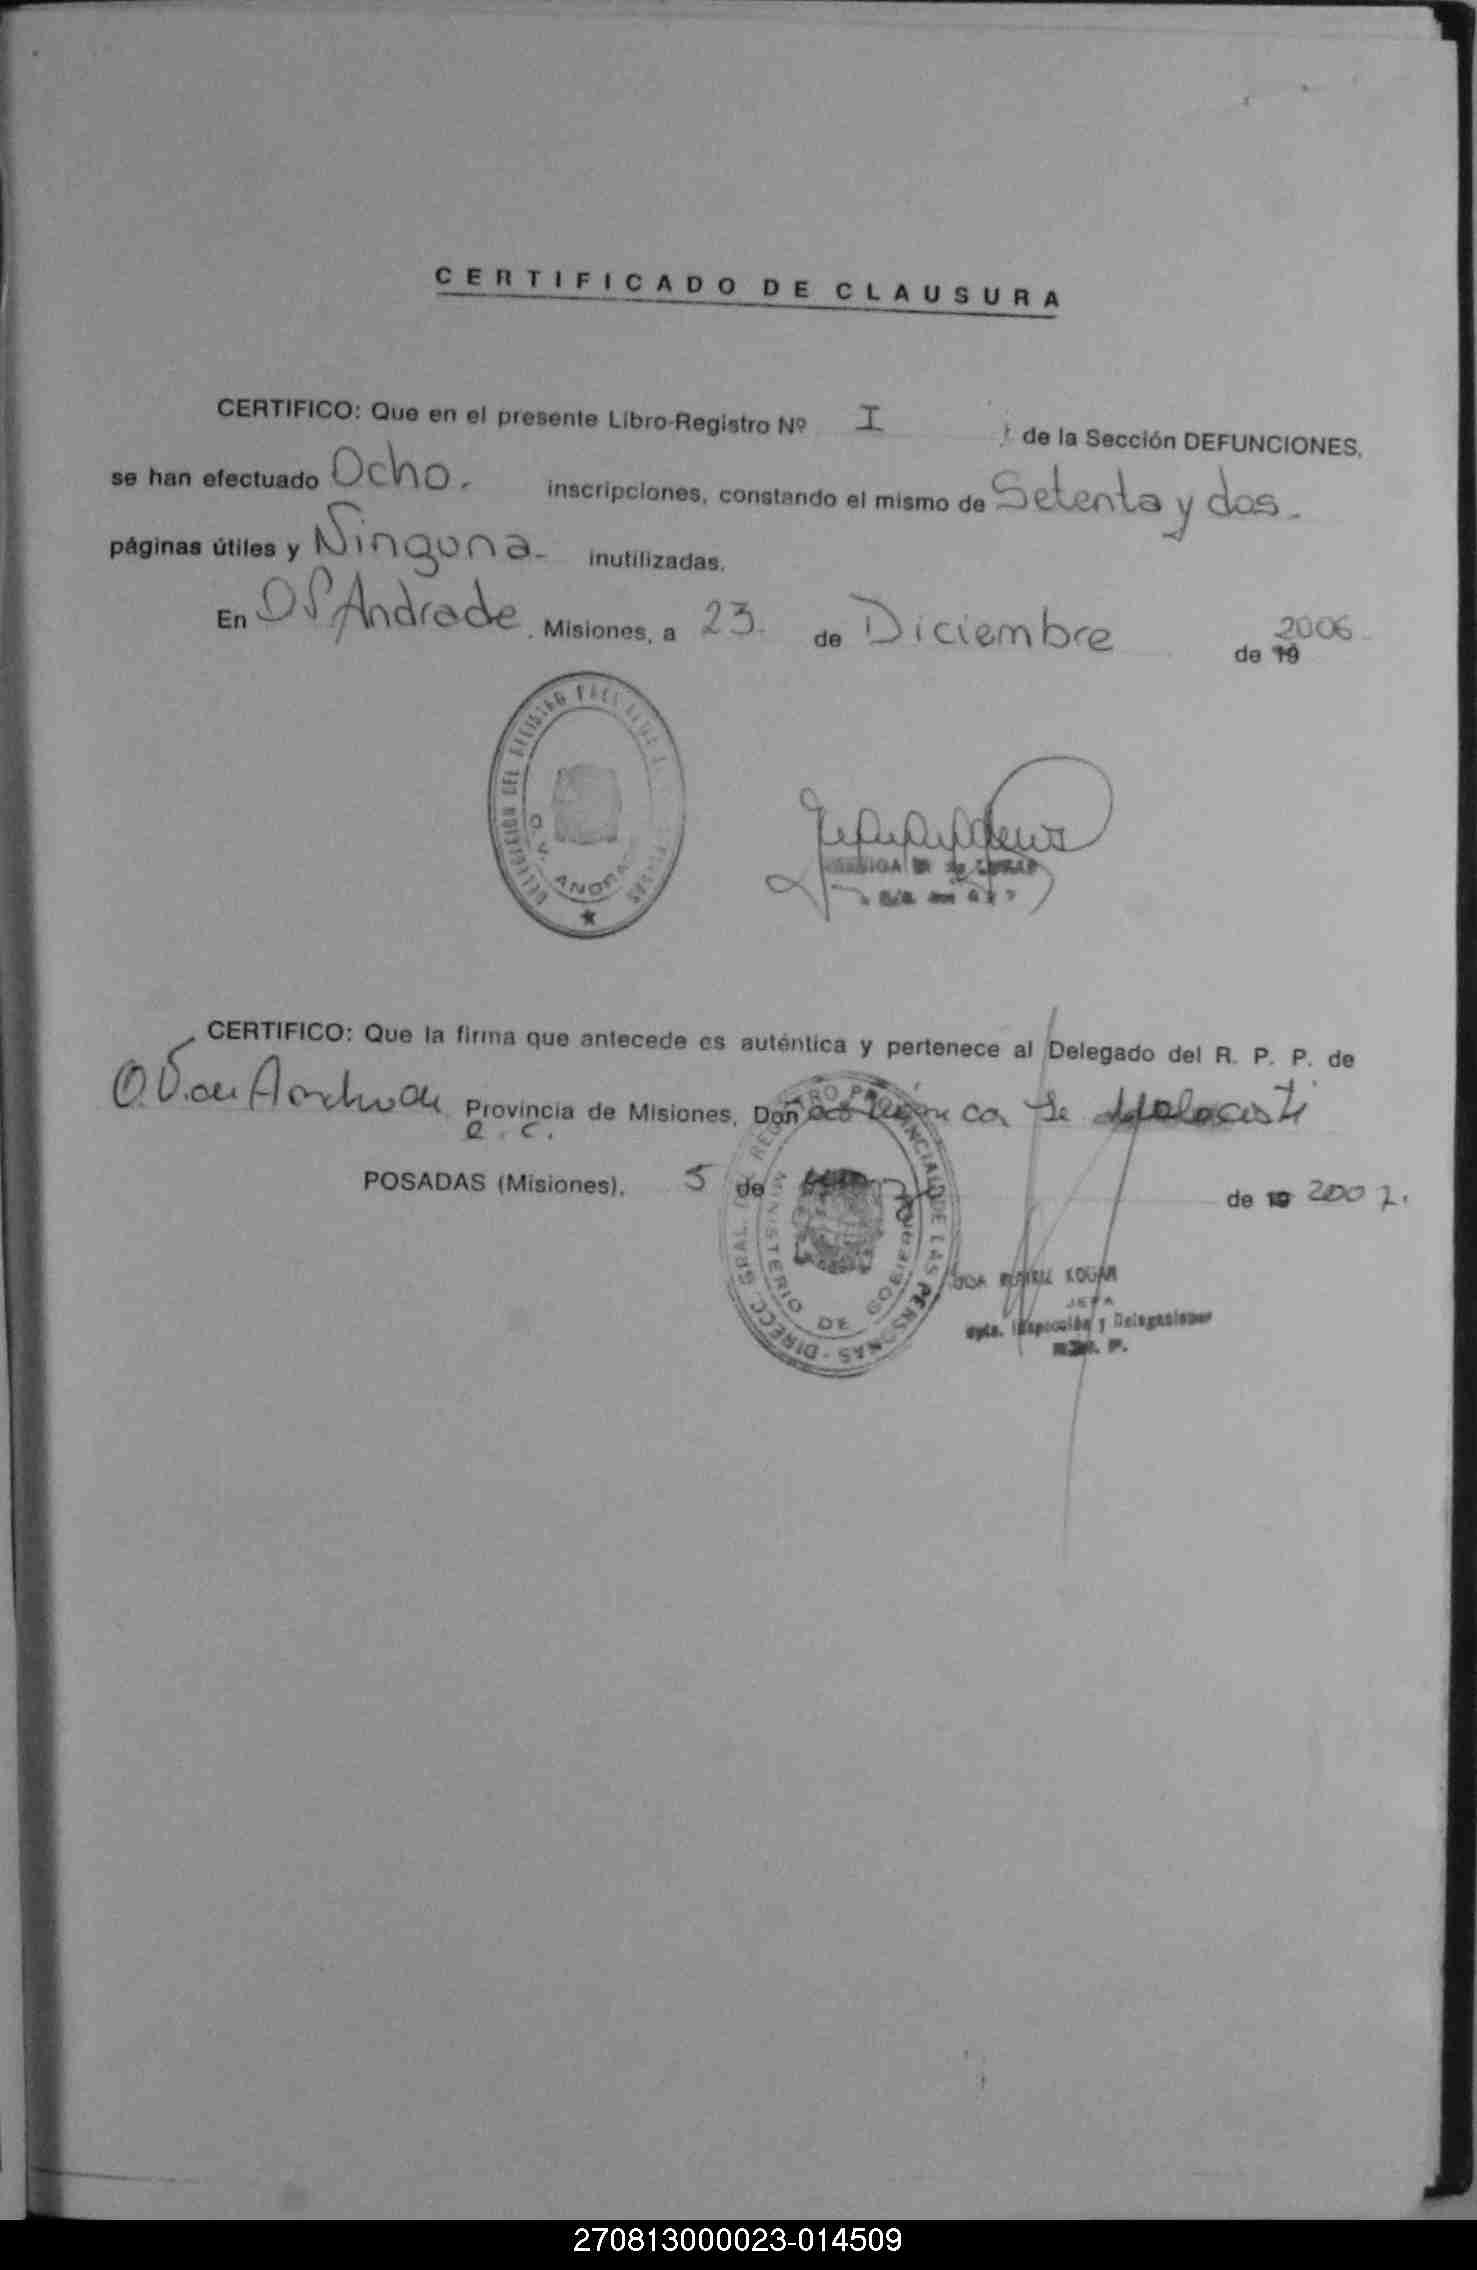 CERTIFICADO DE CLAUSURA
CERTIFICO: Que en el presente Libro-Registro Nº I de la Sección DEFUNCIONES,
se han efectuado Ocho. inscripciones, constando el mismo de Setenta y dos.
páginas útiles y Ninguna- inutilizadas.
En O V Andrade, Misiones, a 23. de Diciembre de 19 2006
DELEGACION DEL REGISTRO
O. V. ANDRADE
CERTIFICO: Que la firma que antecede es auténtica y pertenece al Delegado del R. P. P. de
O.V. Provincia de Misiones, Doña
e. c.
POSADAS (Misiones), 5 de de 19 2007.
DIRECC. GRAL. DEL REGISTRO PROVINCIAL DE LAS PERSONAS -
MINISTERIO DE GOBIERNO
JEFA
Dpto. Inspección y Delegaciones
R. P. P.
270813000023-014509